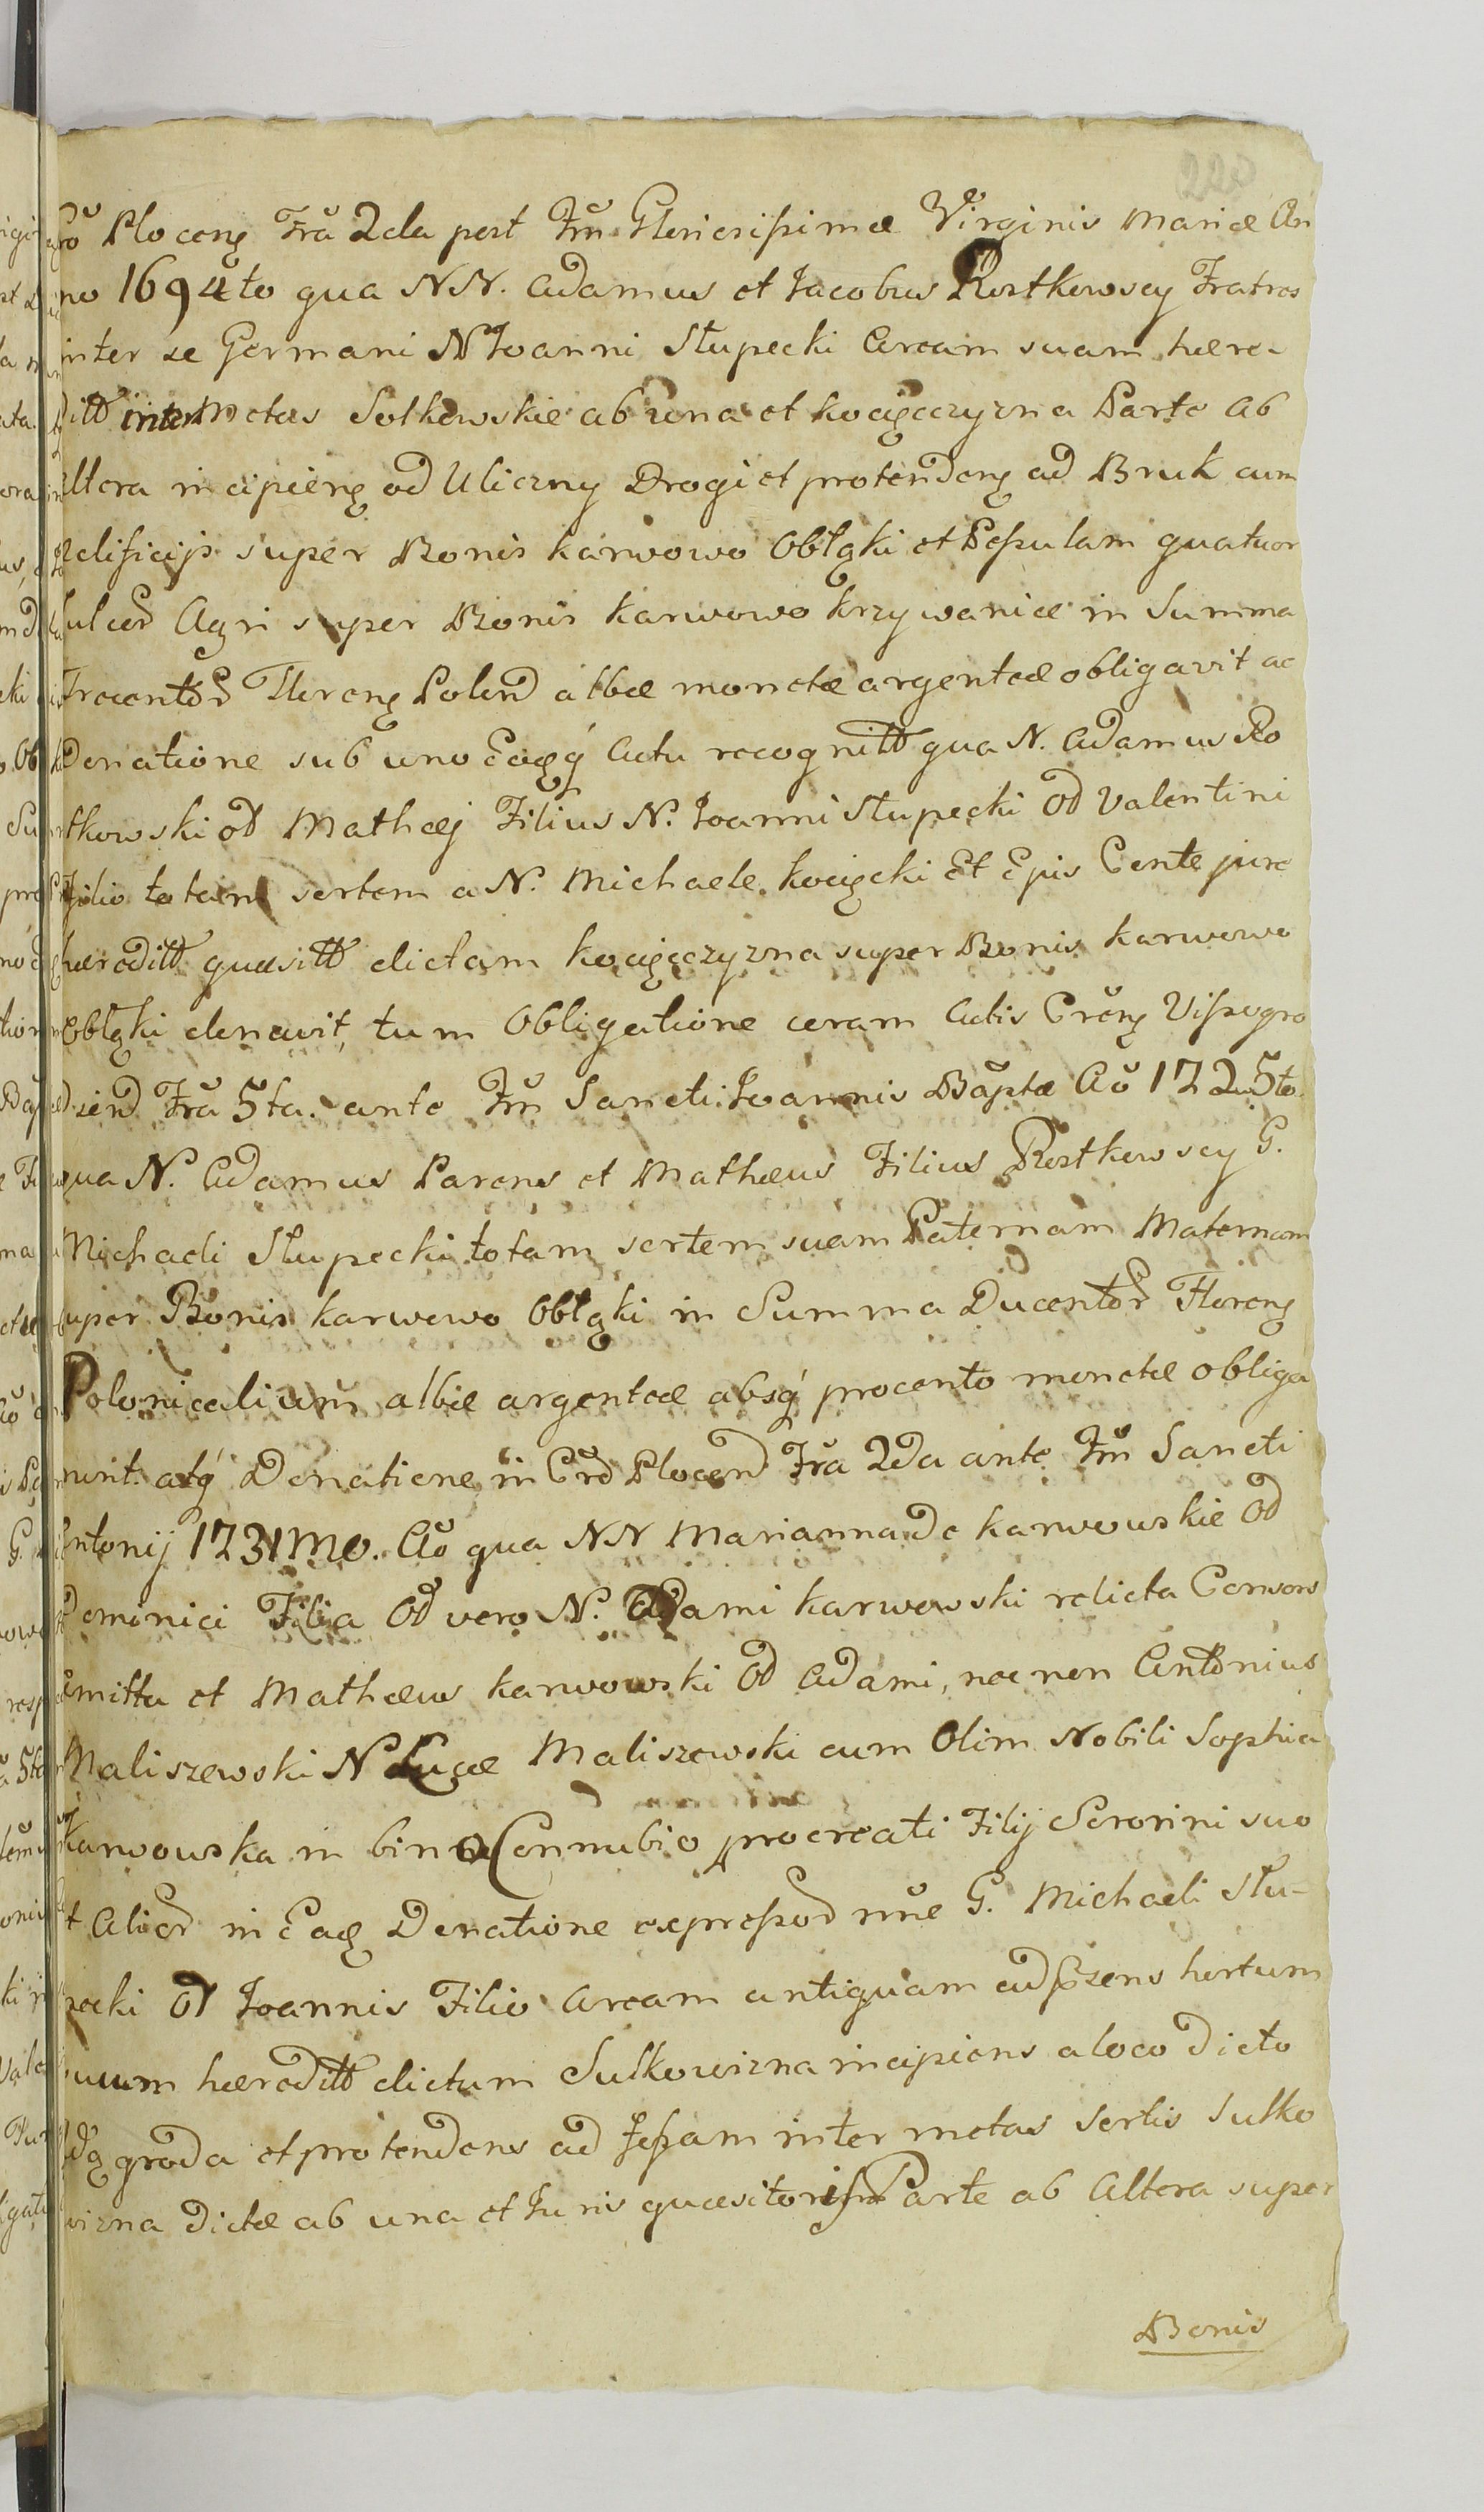 220
Crõ Plocens Frã 2da post Fm̃ Gloriosissimæ Virginis Mariæ An
no 1694to qua NN. Adamus et Jacobus Rostkowscy Fratres
inter se Germani N Joanni Słupecki Aream suam hære-
ditt inter Metas Sołkowskie ab una et Kocięczyzna Parte ab
altera incipiens od Uliczny Drogi et protendens ad Bruk cum
ædificijs super Bonis Karwowo Obłąki et Pessulam quatuor
sulcor Agri super Bonis Karwowo Krzywanice in Summa
Trecentor Florens Polon albæ monetæ argenteæ obligavit ac
Donatione sub uno Eoqq Actu recognitt qua N. Adamus Ro
tkowski od Mathæj Filius N. Joanni Słupecki Od Valentini
Filio totam sortem a N. Michaele Kocięcki Et Ejus Conte jure
hæreditt quæsitt dictam Kocięczyzna super Bonis Karwowo
Obłąki donavit, tum Obligatione coram Actis Crens Vissogro
dzien Frã 5ta. ante Fm̃ Sancti Joannis Bãptæ Aõ 1725to
qua N. Adamus Parens et Mathæus Filius Rostkowscy G.
Michaeli Słupecki totam sortem suam Paternam Maternam
super Bonis Karwowo Obłąki in Summa Ducentor Florens
Polonicalium albæ argenteæ absq procento monetæ obliga
runt. atq Donatione in Crõ Plocen Frã 2da ante Fm̃ Sancti
Antonij 1731mo. Aõ qua NN Marianna de Karwowskie Od
Dominici Filia Od vero N. Adami Karwowski relicta Consors
omitta et Mathæus Karwowski Od Adami, nec non Antonius
Maliszewski N Lucæ Maliszewski cum Olim Nobili Sophia
Karwowska in bino Connubio procreati Filij Sororini suo
et Alior in Eaq Donatione expressor nñe G. Michaeli Słu-
pecki Od Joannis Filio Aream antiquam ad Przens hortum
suum hæreditt dictum Sułkowizna incipiens a loco dicto
groda et protendens ad Fossam inter metas Sortis Sułko
wizna dictæ ab una et Juris quæsitorism Parte ab Altera super
Bonis